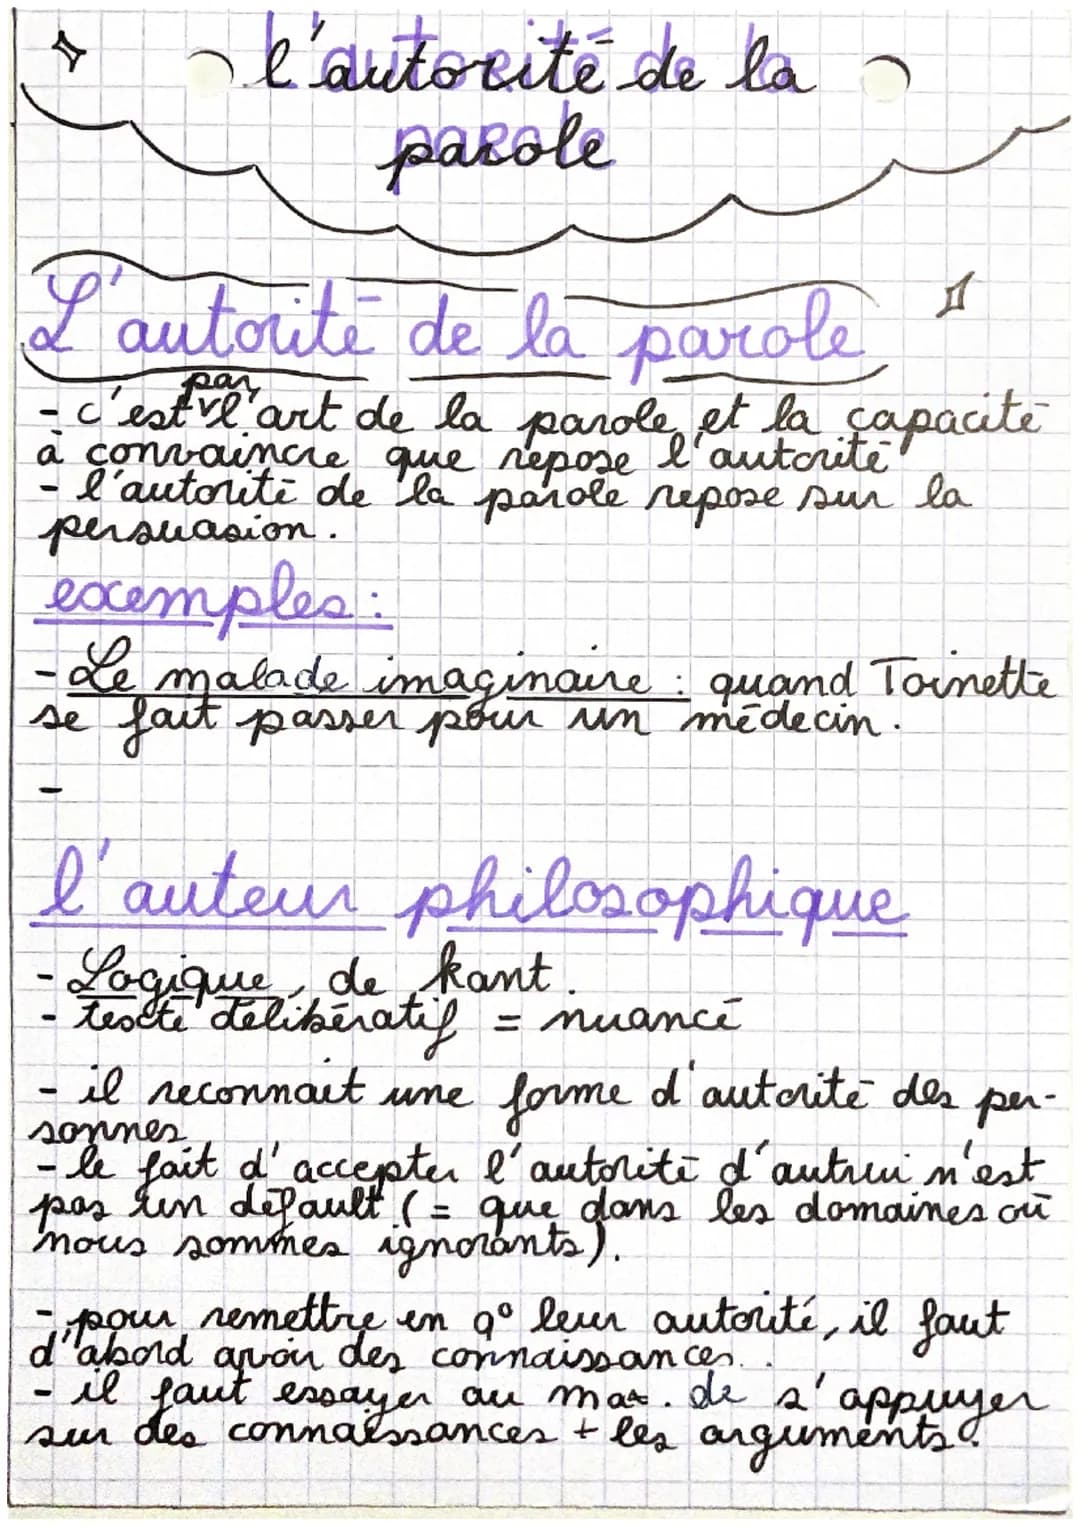 l'autorité de la
parole
L'autorité de la parole
par
- c'est l'art de la parole et la capacité
à convaincre que repose l'autorité
- l'autorité de la parole repose sur la
persuasion.
exemples :
- Le malade imaginaire : quand Toinette
se fait passer pour un médecin.
-
l'auteur philosophique
- Logique, de kant.
- texte délibératif = nuancé
- il reconnait une forme d'autorité des per-
sonnes
- le fait d'accepter l'autorité d'autrui n'est
pas un défault (= que dans les domaines où
nous sommes ignorants).
- pour remettre en q° leur autorité, il faut
d'abord avoir des connaissances..
- il faut essayer au max. de s'appuyer
sur des connaissances + les arguments.